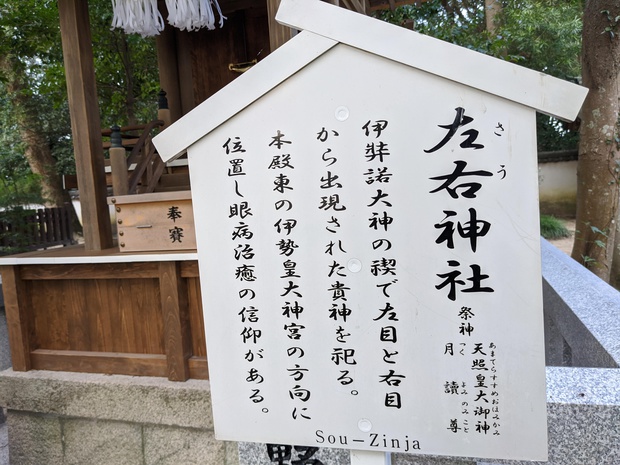 左右神社
さう
祭神 天照皇大御神
あまてらすすめおほみかみ
月讀尊
つくよみのみこと
伊弉諾大神の禊で左目と右目
から出現された貴神を祀る。
本殿東の伊勢皇大神宮の方向に
位置し眼病治癒の信仰がある。
Sou-Zinja
奉賽